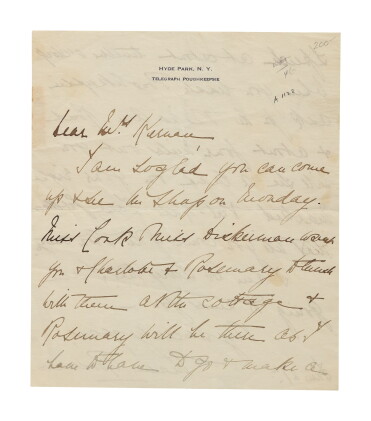 HYDE PARK, N. Y.
TELEGRAPH POUGHKEEPSIE
A 1128
Dear Mrs Kernan,
I am so glad you can come
up & see the shop on Monday.
Miss Cook Miss Dickerman want
you & Charlotte & Rosemary to lunch
with them at the cottage &
Rosemary will be there as I
have to leave to go & make a